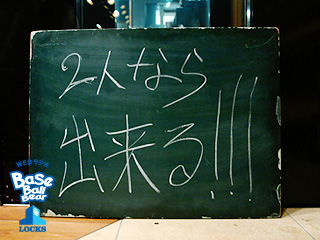 2人なら
出来る!!!
WEBラジオ
Base
Ball
Bear
LOCKS